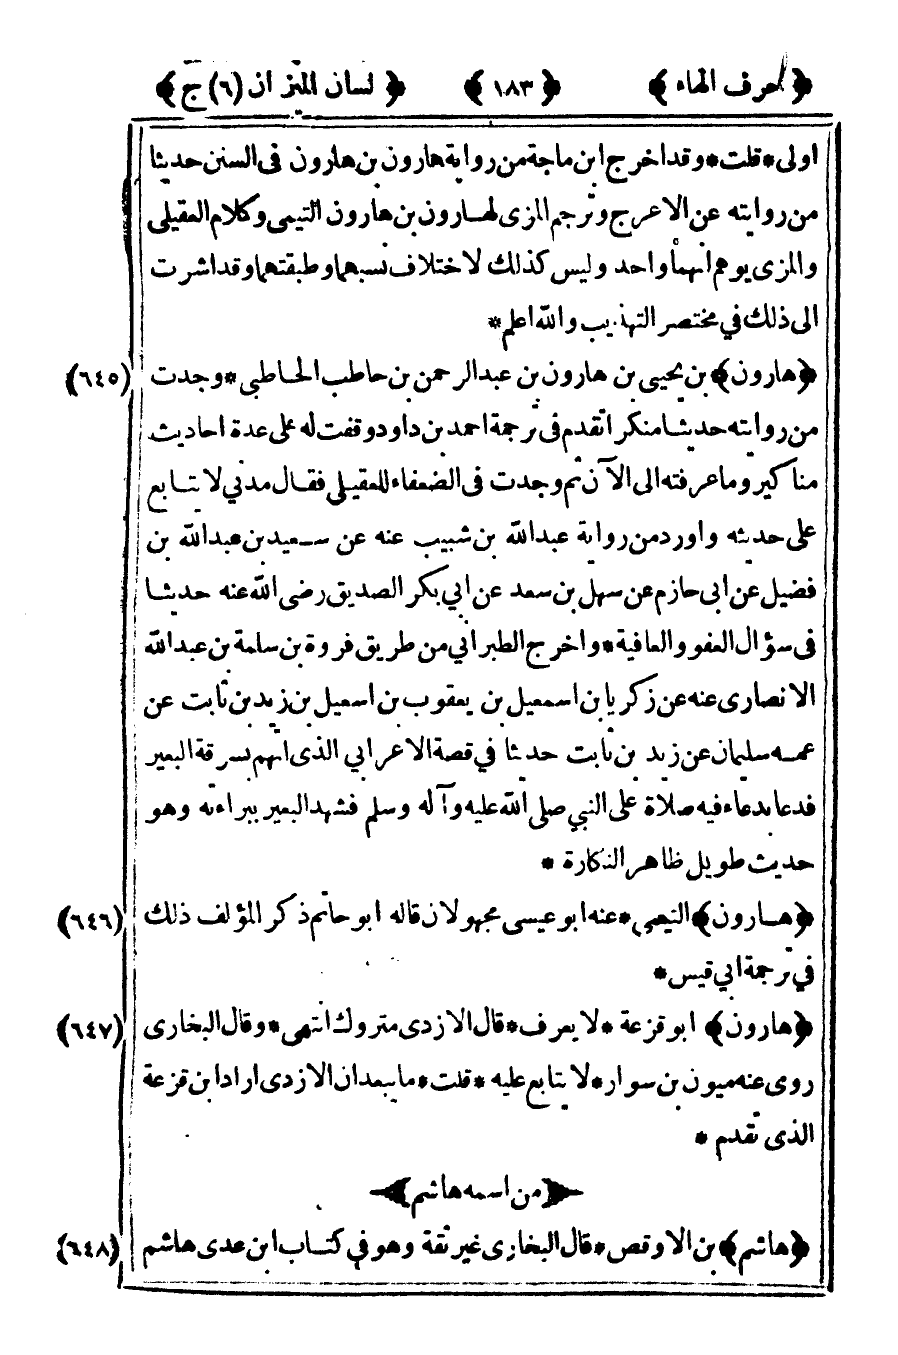 ﴿ حرف الهاء ﴾ ﴿ ١٨٣ ﴾ ﴿ لسان الميزان (٦) ج ﴾
اولى * قلت * وقد اخرج ابن ماجة من رواية هارون بن هارون فى السنن حديثا
من روايته عن الاعرج وترجم المزى لهارون بن هارون التيمى وكلام العقيلى
والمزى يوهم انهما واحد وليس كذلك لاختلاف نسبهما وطبقتهما وقد اشرت
الى ذلك في مختصر التهذيب والله اعلم *
﴿ هارون ﴾ بن يحيى بن هارون بن عبدالرحمن بن حاطب الحاطبي * وجدت (٦٤٥)
من روايته حديثا منكرا تقدم فى ترجمة احمد بن داود وقفت له على عدة احاديث
مناكير وما عرفته الى الآن ثم وجدت فى الضعفاء للعقيلى فقال مدني لا يتابع
على حديثه واورد من رواية عبدالله بن شبيب عنه عن سعيد بن عبدالله بن
فضيل عن ابى حازم عن سهل بن سعد عن ابي بكر الصديق رضى الله عنه حديثا
فى سؤال العفو والعافية * واخرج الطبراني من طريق فروة بن سلمة بن عبدالله
الانصارى عنه عن زكريا بن اسمعيل بن يعقوب بن اسمعيل بن زيد بن ثابت عن
عمه سليمان عن زيد بن ثابت حديثا في قصة الاعرابي الذى اتهم بسرقة البعير
فدعا بدعاء فيه صلاة على النبي صلى الله عليه وآله وسلم فشهد البعير ببراءته وهو
حديث طويل ظاهر النكارة *
﴿ هارون ﴾ التيمي * عنه ابو عيسى مجهولان قاله ابو حاتم ذكر المؤلف ذلك (٦٤٦)
في ترجمة ابي قيس *
﴿ هارون ﴾ ابو قزعة * لا يعرف * قال الازدى متروك انتهى * وقال البخارى (٦٤٧)
روى عنه ميمون بن سوار * لا يتابع عليه * قلت * ما يبعد ان الازدى اراد ابن قزعة
الذى تقدم *
﴿ من اسمه هاشم ﴾
﴿ هاشم ﴾ بن الاوقص * قال البخارى غير ثقة وهو في كتاب ابن عدى هاشم (٦٤٨)